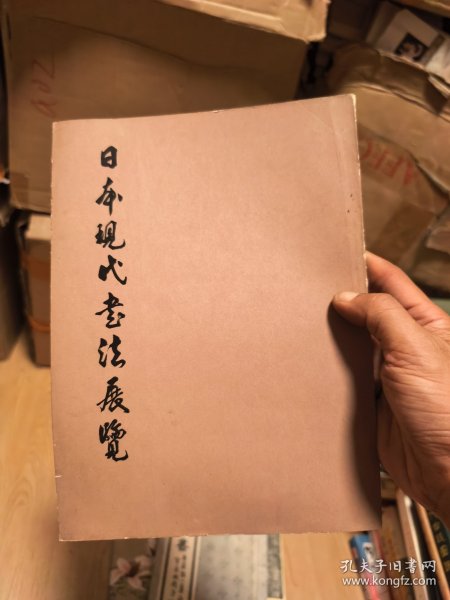 日本現代书法展覽
孔夫子旧书网
www.kongfz.com